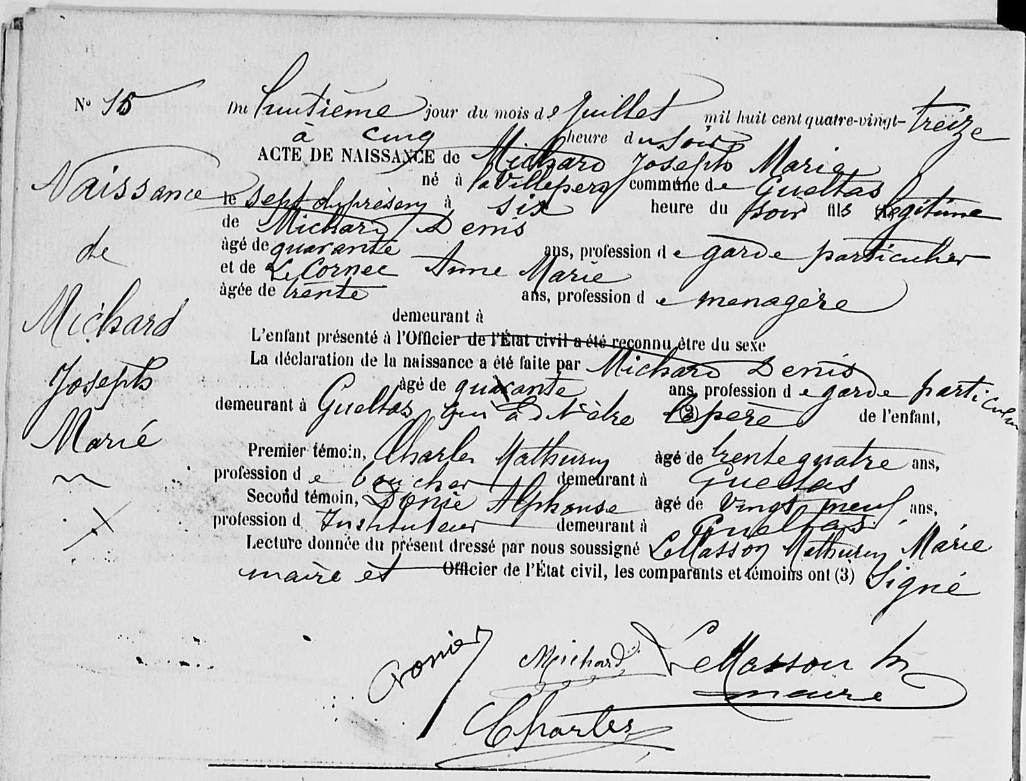 N° 15
Du huitième jour du mois de Juillet mil huit cent quatre-vingt-treize
à cinq heure du Soir
ACTE DE NAISSANCE de Michard Joseph Marie
né à commune de Gueltas
le sept du présent à six heure du soir fils légitime
de Michard Denis
âgé de quarante ans, profession de garde particulier
et de Le Cornec Anne Marie
âgée de trente ans, profession de menagère
demeurant à
L'enfant présenté à l'Officier de l'État civil a été reconnu être du sexe
La déclaration de la naissance a été faite par Michard Denis
âgé de quarante ans, profession de garde particulier
demeurant à Gueltas qui a dit être (2) père de l'enfant,
Premier témoin, Charles Mathurin âgé de trente quatre ans,
profession de demeurant à Gueltas
Second témoin, Alphonse âgé de vingt neuf ans,
profession d Instituteur demeurant à Gueltas
Lecture donnée du présent dressé par nous soussigné Le Masson Mathurin Marie
maire et Officier de l'État civil, les comparants et témoins ont (3) Signé
Naissance
de
Michard
Joseph
Marie
Michard Le Masson M
maire
Charles